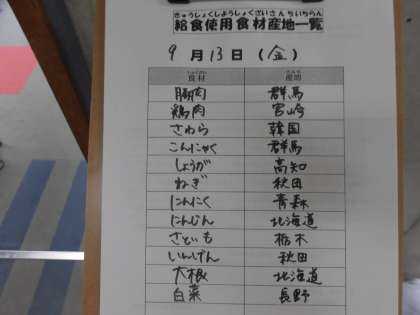 きゅうしょくしようしょくざいさんちいちらん
給食使用食材産地一覧
9月13日(金)
食材 産地
豚肉 群馬
鶏肉 宮崎
さわら 韓国
こんにゃく 群馬
しょうが 高知
ねぎ 秋田
にんにく 青森
にんじん 北海道
さといも 栃木
いんげん 秋田
大根 北海道
白菜 長野